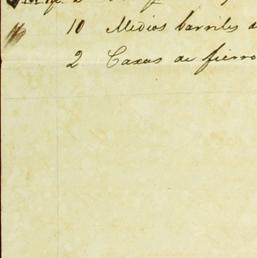 10 Medios barriles
2 Caxas de fierro